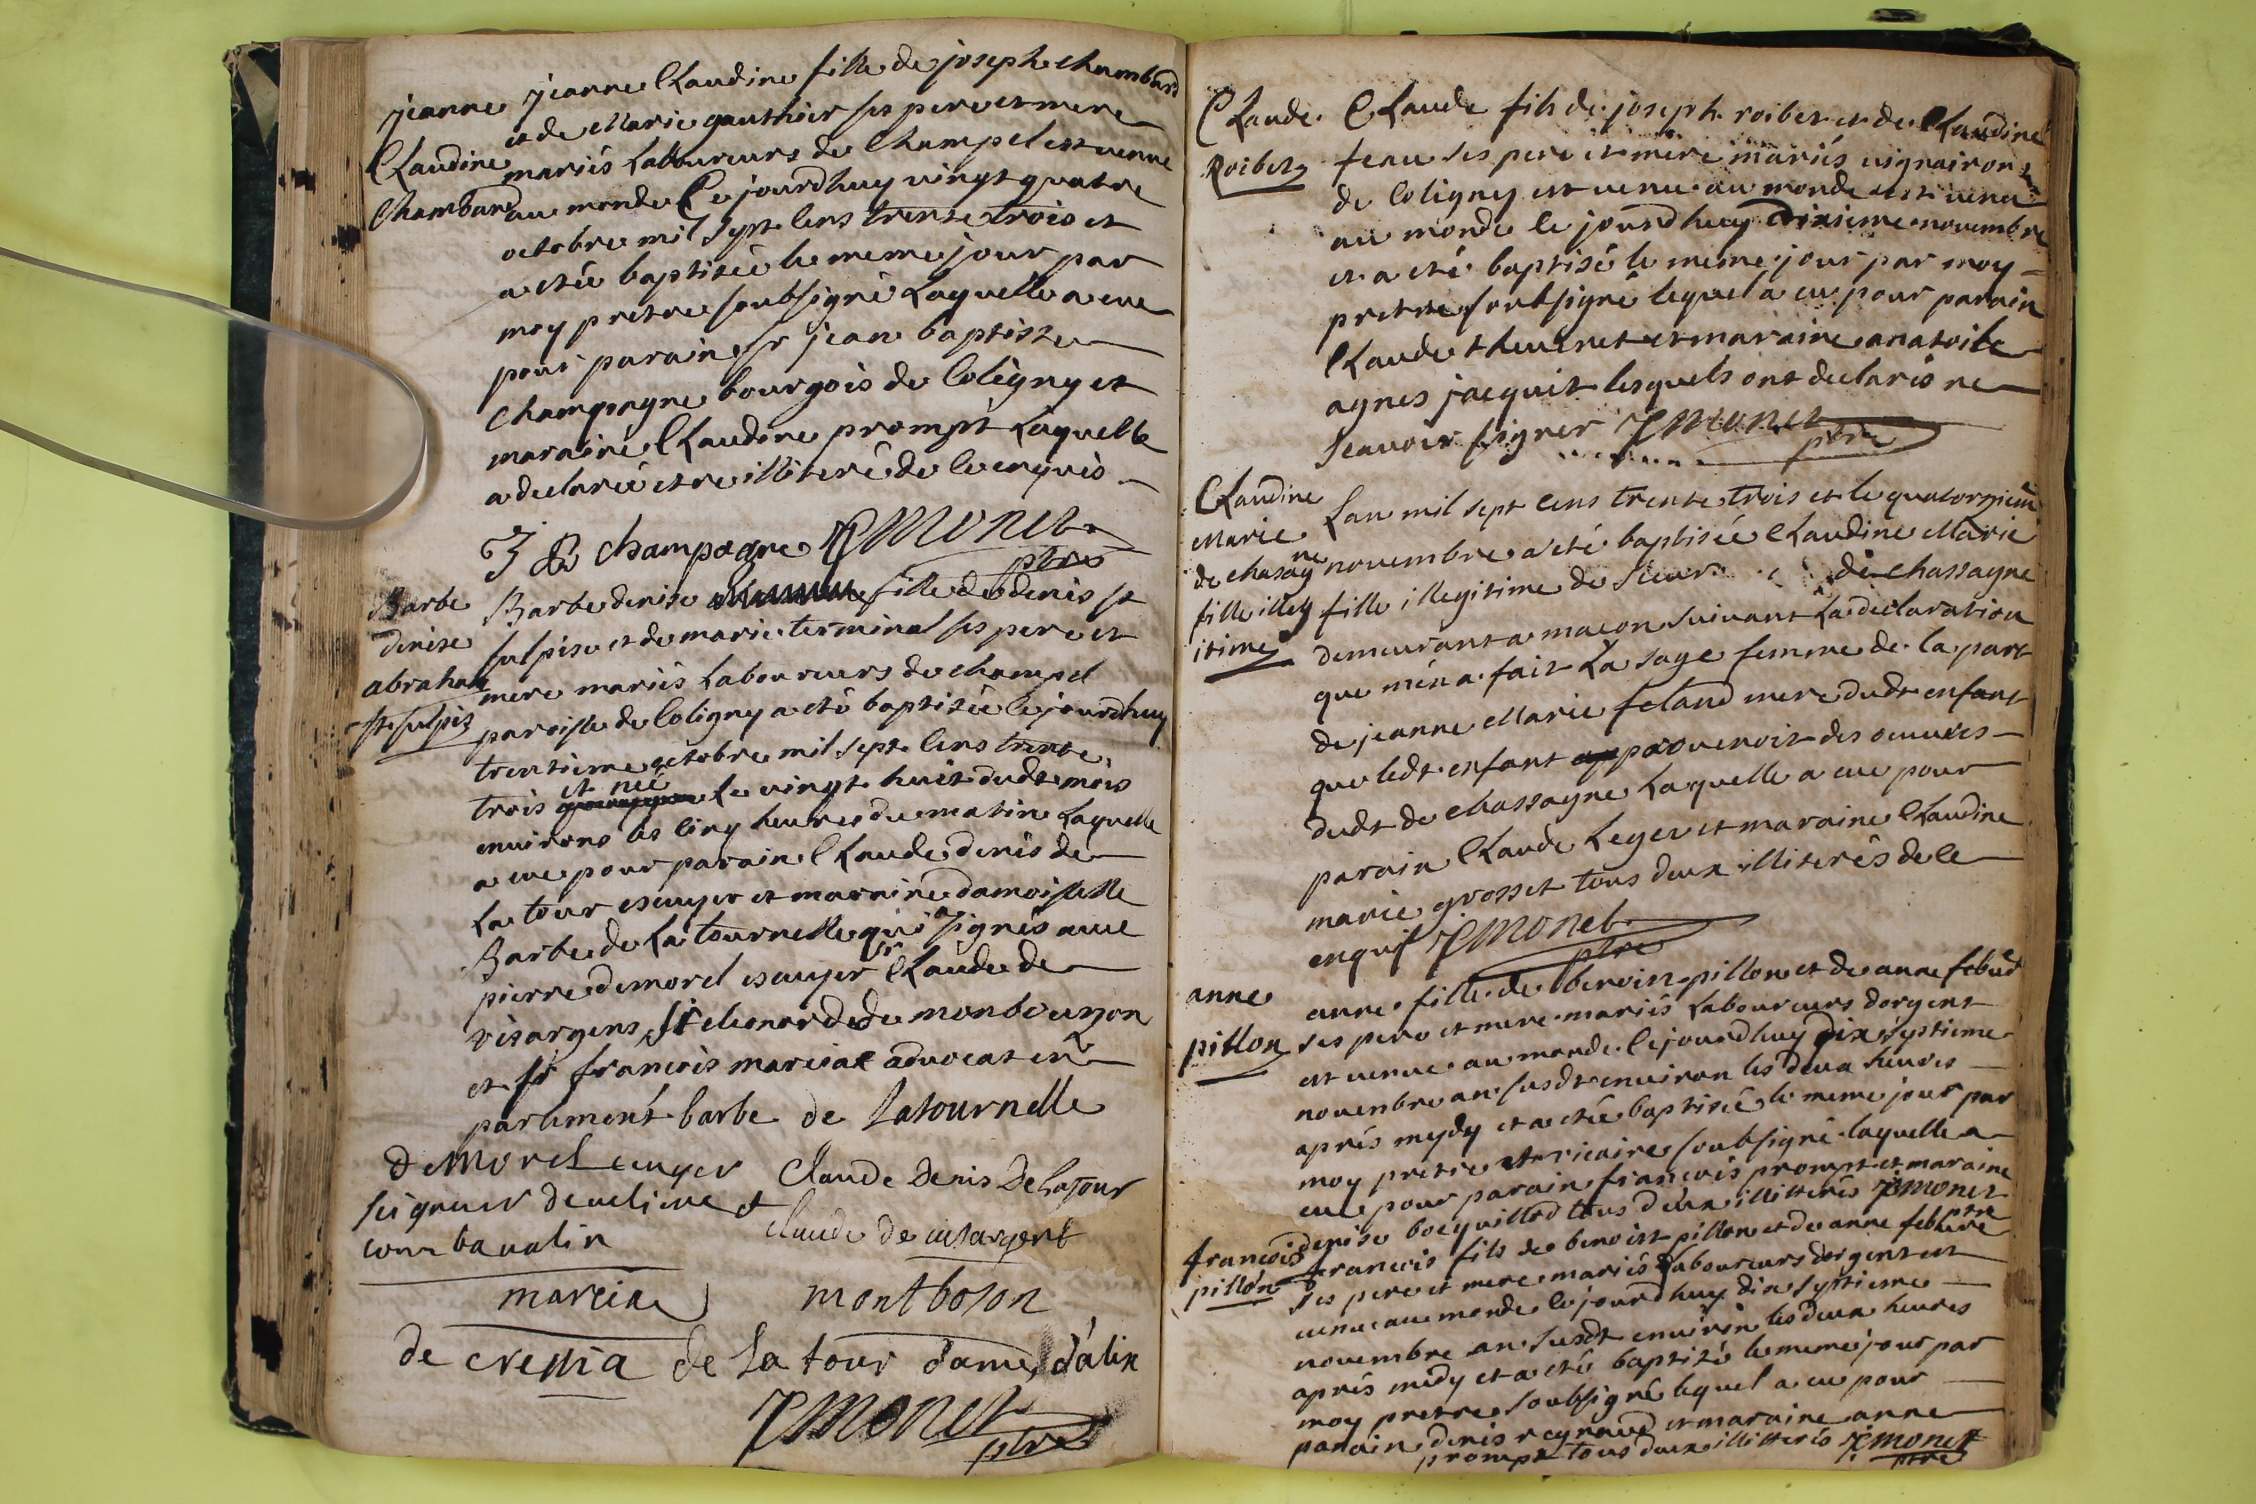 jeanne
Claudine
Chambard
jeanne Claudine fille de joseph chambard
et de Marie gauthier ses pere et mere
mariés Laboureurs de Champel est venue
au monde Ce jourdhuy vingt quatre
octobre mil sept Cens trente trois et
a eté baptisée le meme jour par
moy pretre soubsigné Laquelle a eue
pour parain sr jean baptiste
Champagne bourgois de Coligny et
maraine Claudine prompt Laquelle
a declaré etre illiteré de ce enquis
J B champagne JMonet
ptre
Barbe
denise
abraham
st sulpis
Barbe denise fille de denis st
sulpise et de marie terminal ses pere et
mere mariés Laboureurs de champel
paroisse de Coligny a eté baptisée Cejourdhuy
trentieme octobre mil sept Cens trente
trois et née Le vingt huit dudt mois
environs les Cinq heures du matin Laquelle
a eue pour parain Claude denis de
La tour escuyer et maraine damoiselle
Barbe de La tournelle qui signés avec
pierre demorel escuyer sr Claude de
visargens, sr eleonord de monbouzon
et sr francois marciat advocat en
parlement barbe de Latournelle
DeMorel ecuyer
seigneur develieme et
courbavalin
Claude Denis De La Tour
Claude de visargent
marcia montboson
de cressia de La tour dame d'alix
JMonet
ptre
Claude
Roibet
Claude fils de joseph roibet et de Claudine
feau ses pere et mere mariés vignairons
de Coligny est venu au monde est venu
au monde le jourdhuy dixieme novembre
et a eté baptisé le meme jour par moy
pretre soubsigné lequel a eu pour parain
Claude thevenet et maraine anatoile
agnes jacquit lesquels ont declarés ne
scavoir signer JMonet
ptre
Claudine
Marie
de chasagne
fille illeg
itime
Lan mil sept Cens trente trois et le quatorzieme
novembre a eté baptisée Claudine Marie
fille illegitime de Sieur de chassagne
demeurant a macon suivant La declaration
que m'en a fait La sage femme de la part
de jeanne Marie feland mere dudt enfant
que ledt enfant provenoit des oeuvres
dudt de chassagne Laquelle a eue pour
parain Claude Leger et maraine Claudine
marie grosset tous deux illiterés de ce
enquis JMonet
ptre
anne
pillon
anne fille de benoist pillon et de anne febvre
ses pere et mere mariés Laboureurs dorgent
est venue au monde Cejourdhuy dix septieme
novembre an susdt environ les deux heures
après mydy et a eté baptisée le meme jour par
moy pretre vicaire soubsigné laquelle a
eue pour parain francois prompt et maraine
denise bocquillod tous deux illiterés JMonet
ptre
francois
pillon
francois fils de benoist pillon et de anne febvre
ses pere et mere mariés Laboureurs dorgent est
venu au monde le jourdhuy dix septieme
novembre an susdt environ les deux heures
après midy et a eté baptisé le meme jour par
moy pretre soubsigné lequel a eu pour
parain denis reynaud et maraine anne
prompt tous deux illitterés JMonet
ptre